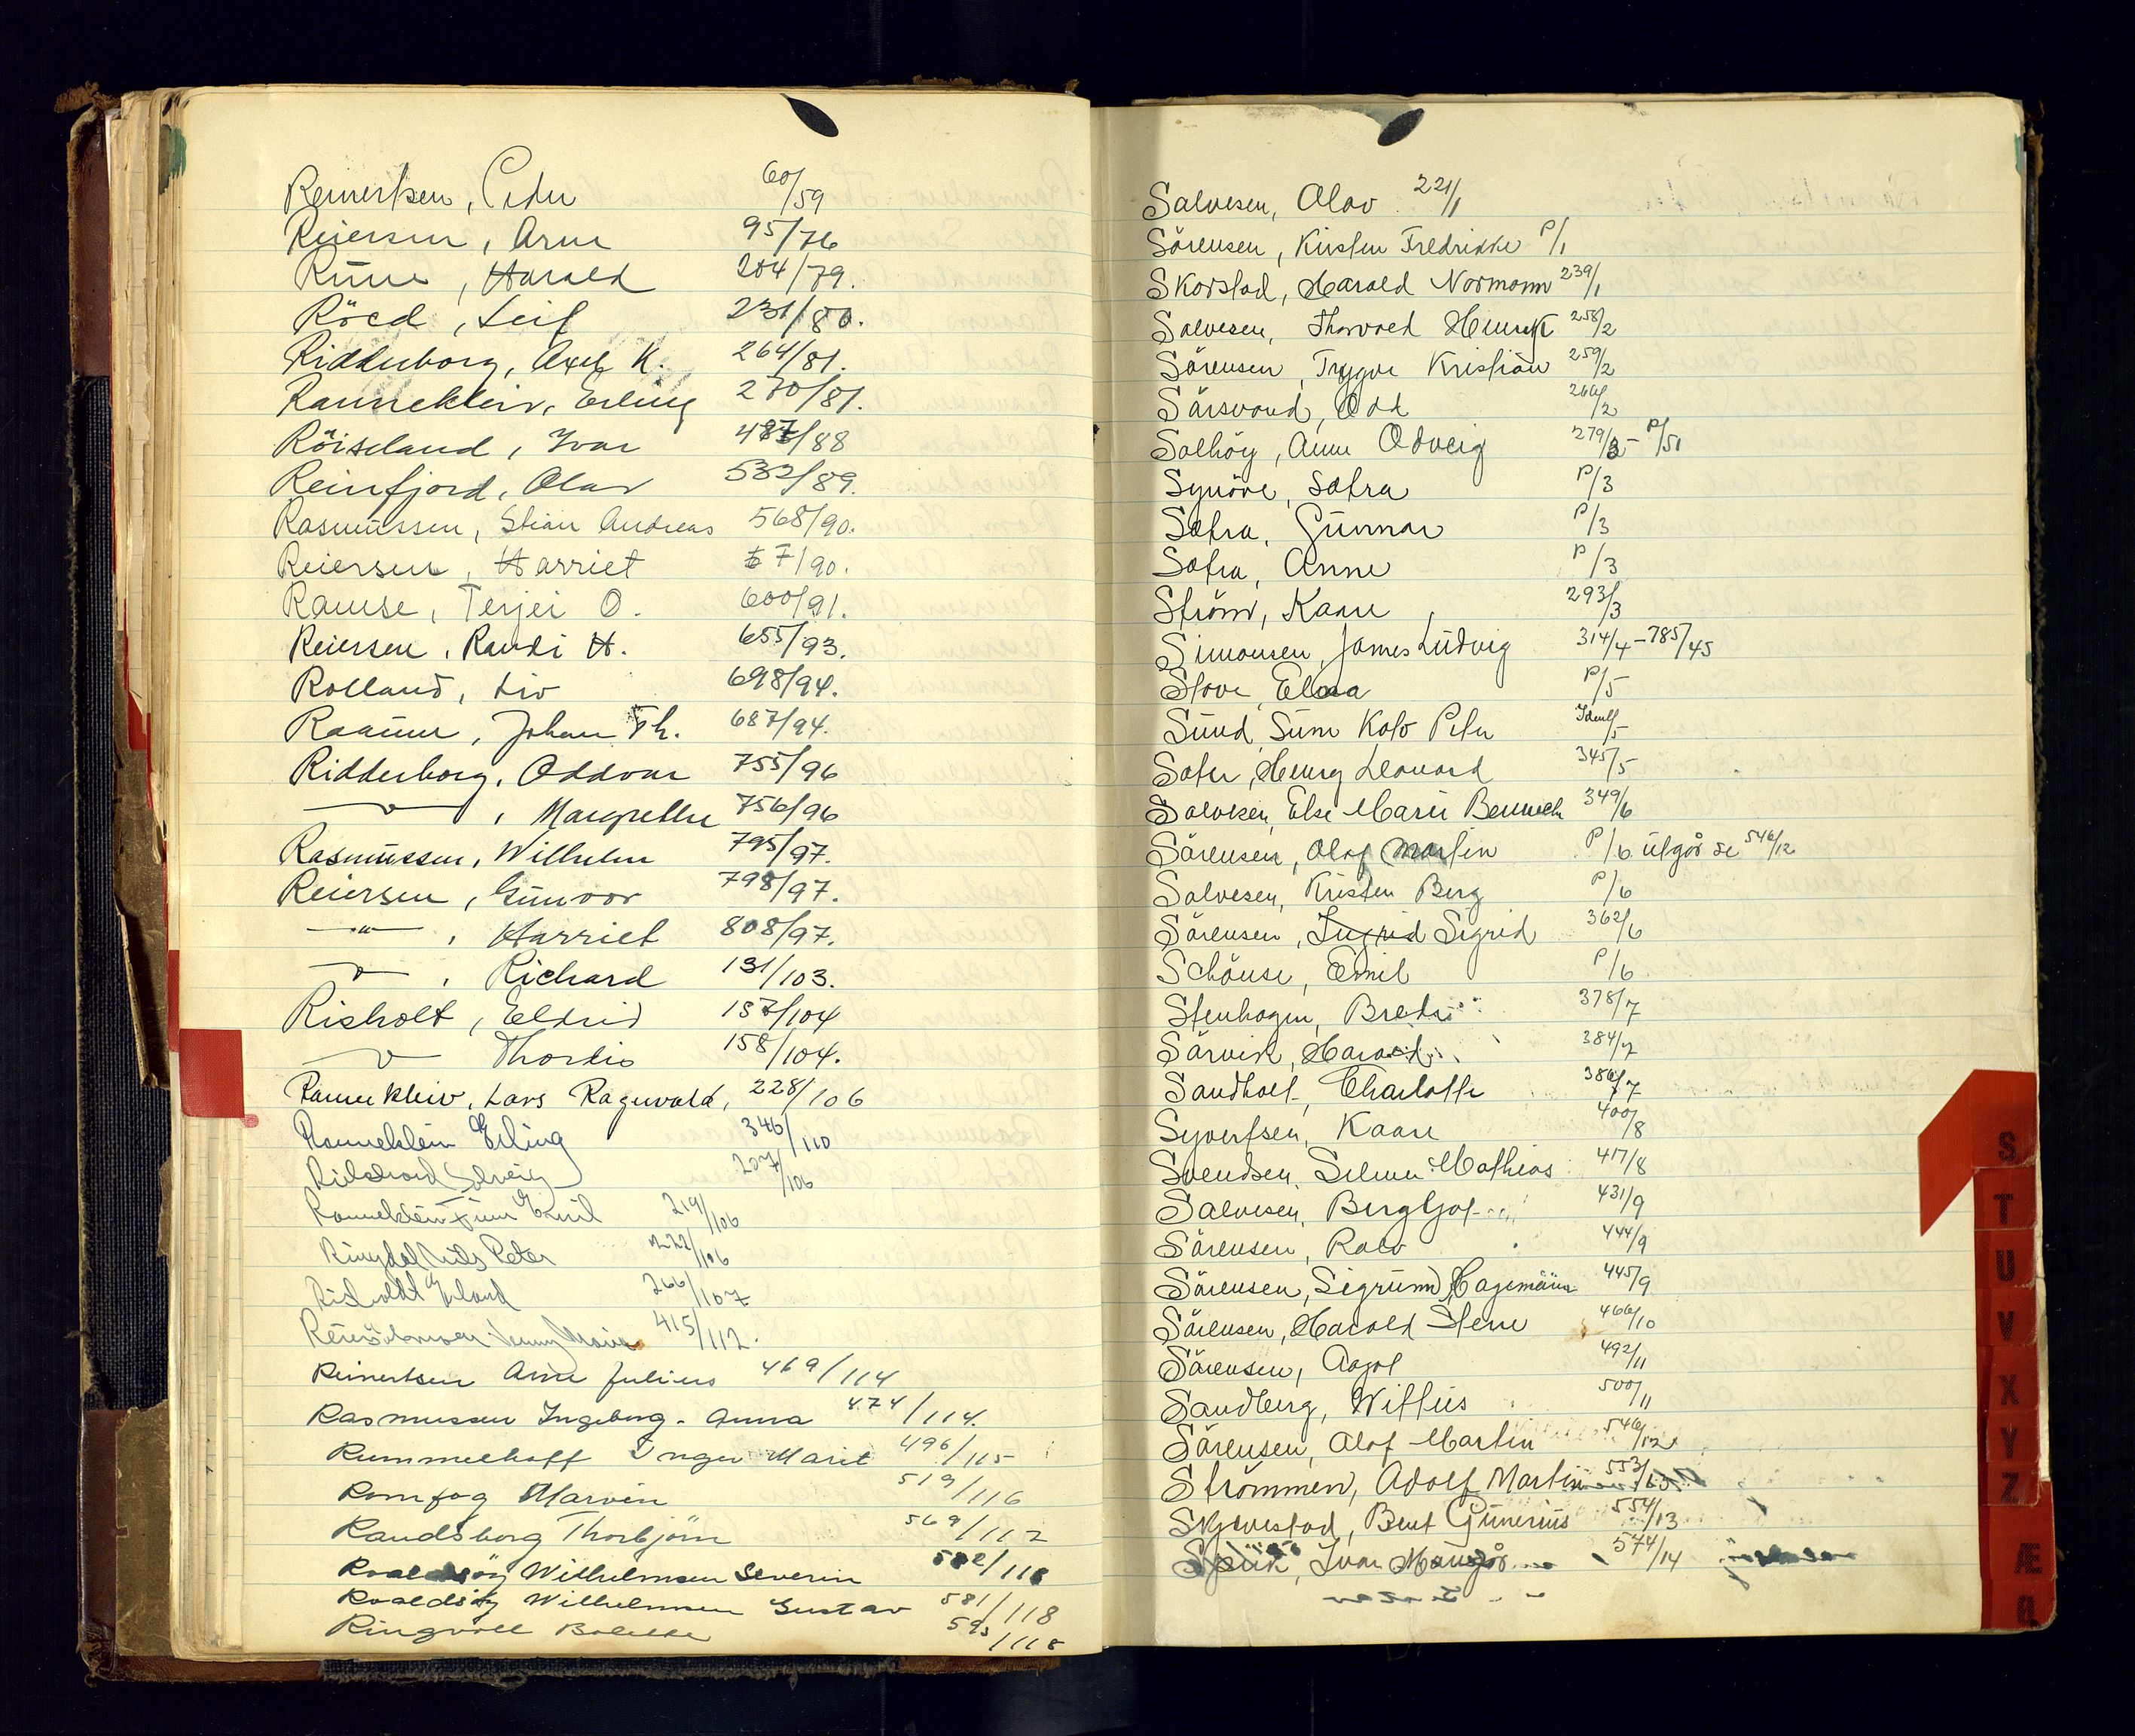 Reinertsen, Peder 60/59
Reiersen, Arne 95/76
Rune, Harald 204/79.
Röed, Leif 231/80.
Ridderborg, Axel K. 264/81.
Rannekleiv, Erling 270/81.
Röiseland, Ivar /88
Reinfjord, Olav 532/89.
Rasmussen, Stian Andreas 568/90.
Reiersen, Harriet 67/90.
Ramse, Terjei O. 600/91.
Reiersen, Randi H. 655/93.
Rolland, Liv 698/94.
Raaum, Johan Th. 687/94.
Ridderborg, Oddvar 755/96
—"—, Margrethe 756/96
Rasmussen, Wilhelm 795/97.
Reiersen, Gunvor 798/97.
—"—, Harriet 808/97.
—"—, Richard 131/103.
Risholt, Eldrid 157/104
—"— Thordis 158/104.
Rannekleiv, Lars Ragnvald, 228/106
Rannekleiv Erling 346/110
Solveig 207/106
Rannekleiv Finn Emil 219/106
Ringdal Nils Peter 222/106
Risholdt Erland 266/107
Jenny Marie 415/112.
Reinertsen Arne Julius 469/114
Rasmussen Ingeborg-Anna 474/114.
Rummelhoff Inger Marit 496/115
Romfog Marvin 519/116
Randsborg Thorbjörn 569/117
Roaldsöy Wilhelmsen Severin 582/118
Roaldsöy Wilhelmsen Gustav 581/118
Ringvoll Bolette 595/118
Salvesen, Olav 221/1
Sörensen, Kirsten Fredrikke P/1
Skorstad, Harald Normann 239/1
Salvesen, Thorvald Henrik 258/2
Sörensen, Trygve Kristian 259/2
Sörsvand, Odd 266/2
Solhöy, Anne Odveig 279/3 - P/51
Synöve, Sætra P/3
Sætra, Gunnar P/3
Sætra, Anne P/3
Ström, Kaare 293/3
Simonsen, James Ludvig 314/4 - 785/45
Stove, Elna P/5
Sund, Sune Kolv Peter Ident/5
Sæter, Henry Leonard 345/5
Salvesen, Else Marie Bennech 349/6
Sörensen, Olaf Martin P/6 utgår se 546/12
Salvesen, Kristen Berg P/6
Sörensen, Ingrid Sigrid 362/6
Schönse, Emil P/6
Stenhagen, Breda 378/7
Sörvik, Harald 384/7
Sandholt, Charlotte 386/7
Syvertsen, Kaare 400/8
Svendsen, Selmer Mathias 417/8
Salvesen, Bergljot 431/9
Sörensen, Rolv 444/9
Sörensen, Sigrunn Hagemann 445/9
Sörensen, Harald Stene 466/10
Sörensen, Aagot 492/11
Sandberg, Willius 500/11
Sörensen, Olaf Martin 546/12
Strömmen, Adolf Martin 553/13
Skjevestad, Bent Gunerius 554/13
Ivar Magnar 574/14
S
T
U
V
X
Y
Z
Æ
Ø